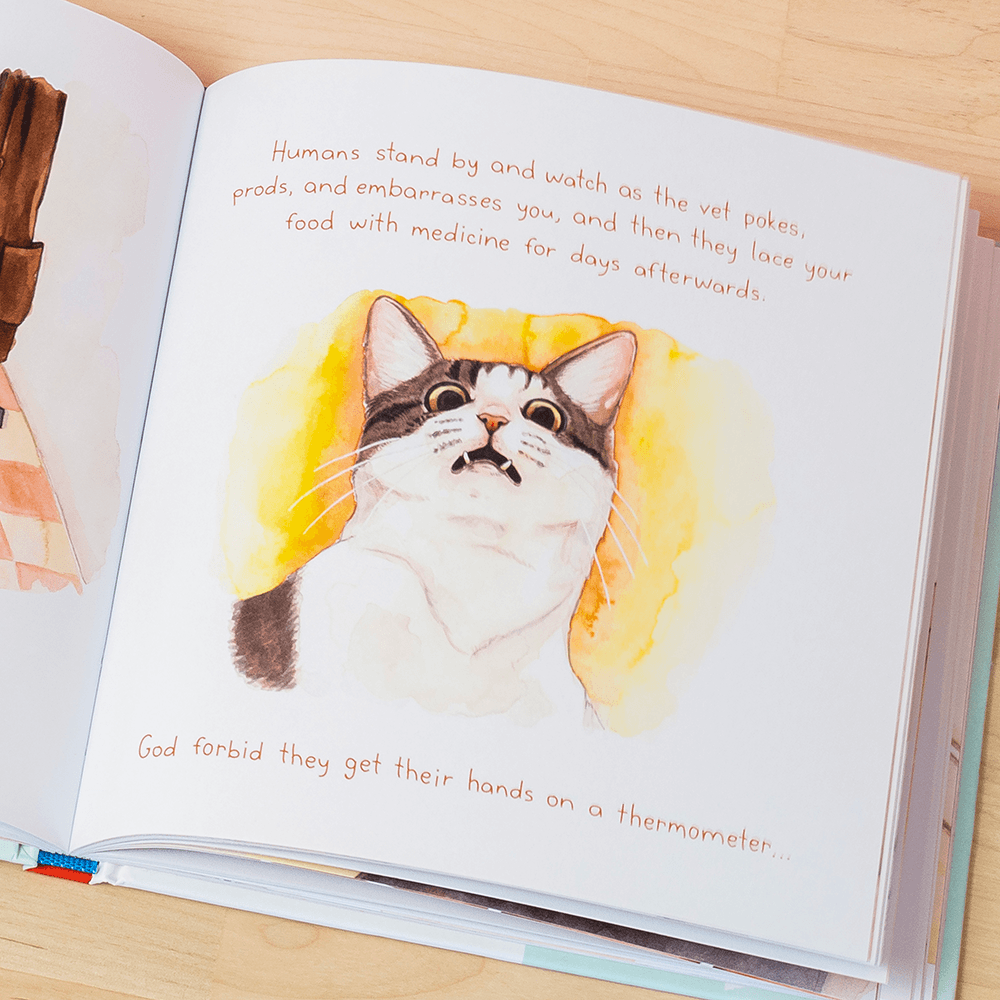 Humans stand by and watch as the vet pokes,
prods, and embarrasses you, and then they lace your
food with medicine for days afterwards.
God forbid they get their hands on a thermometer...